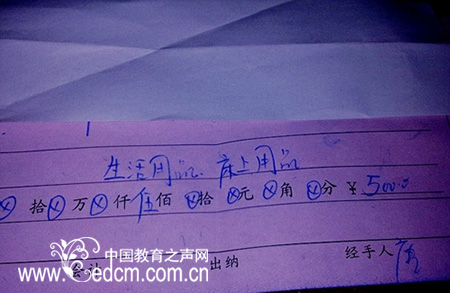 生活用品、床上用品
拾 万 仟伍佰 拾 元 角 分 ¥ 500.0
会计 出纳 经手人
中国教育之声网
www.edcm.com.cn